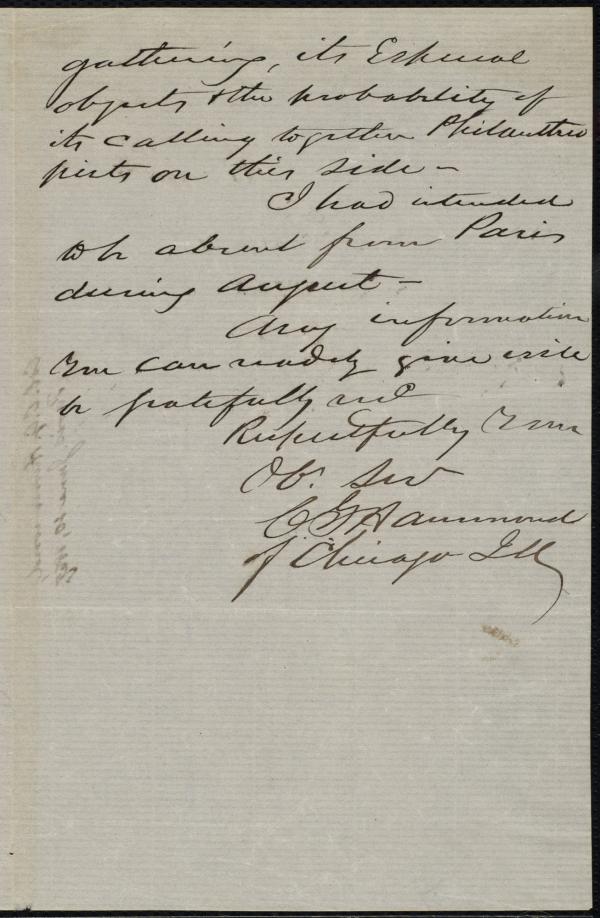 gathering, its Especial
objects & the probability of
its calling together Philanthro
pists on this side –
I had intended
to be absent from Paris
during August –
Any information
you can readily give will
be gratefully recd
Respectfully Your
Ob. Serv
C G Hammond
of Chicago Ill